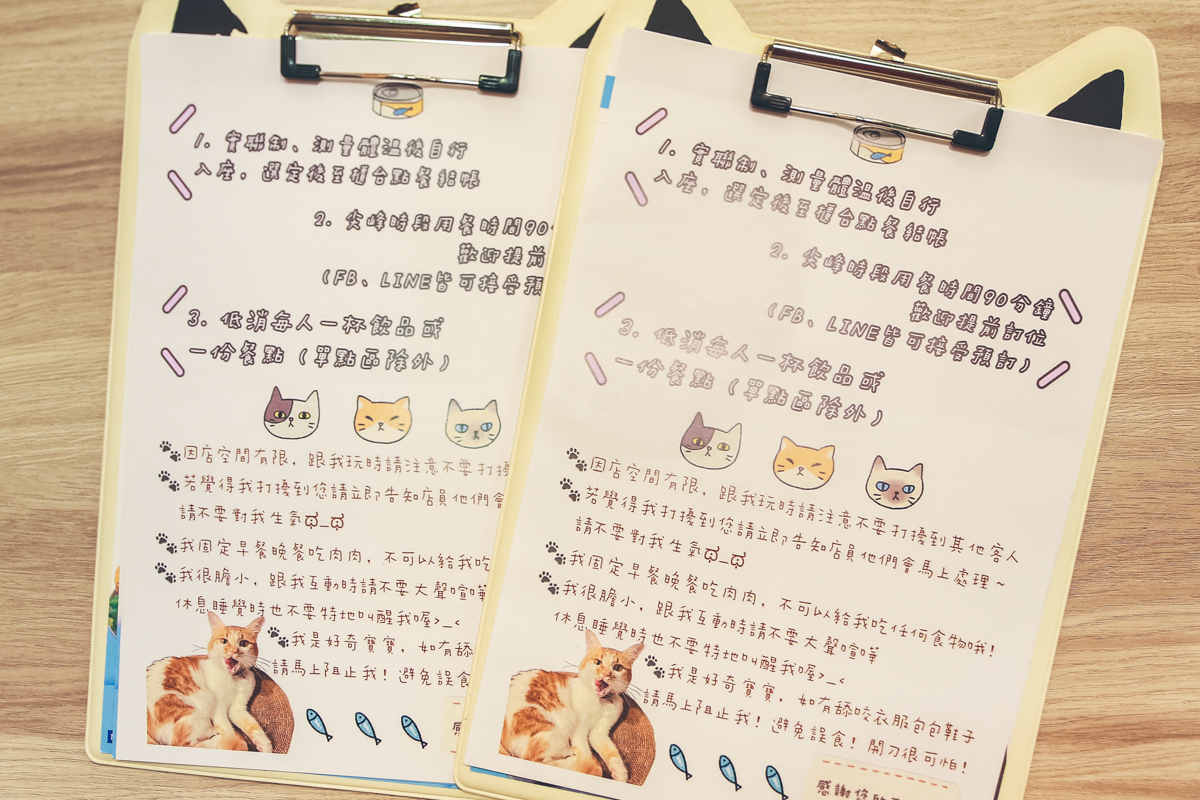 1. 實聯制、測量體溫後自行
入座，選定後至櫃台點餐結帳
2. 尖峰時段用餐時間90
歡迎提前
(FB、LINE皆可接受預
3. 低消每人一杯飲品或
一份餐點（單點區除外）
因店空間有限，跟我玩時請注意不要打擾
若覺得我打擾到您請立即告知店員他們會
請不要對我生氣ಥ_ಥ
我固定早餐晚餐吃肉肉，不可以給我吃
我很膽小，跟我互動時請不要大聲喧嘩
休息睡覺時也不要特地叫醒我喔>_<
我是好奇寶寶，如有舔
請馬上阻止我！避免誤食
1. 實聯制、測量體溫後自行
入座，選定後至櫃台點餐結帳
2. 尖峰時段用餐時間90分鐘
歡迎提前訂位
(FB、LINE皆可接受預訂)
3. 低消每人一杯飲品或
一份餐點（單點區除外）
因店空間有限，跟我玩時請注意不要打擾到其他客人
若覺得我打擾到您請立即告知店員他們會馬上處理~
請不要對我生氣ಥ_ಥ
我固定早餐晚餐吃肉肉，不可以給我吃任何食物哦！
我很膽小，跟我互動時請不要大聲喧嘩
休息睡覺時也不要特地叫醒我喔>_<
我是好奇寶寶，如有舔咬衣服包包鞋子
請馬上阻止我！避免誤食！開刀很可怕！
感謝您